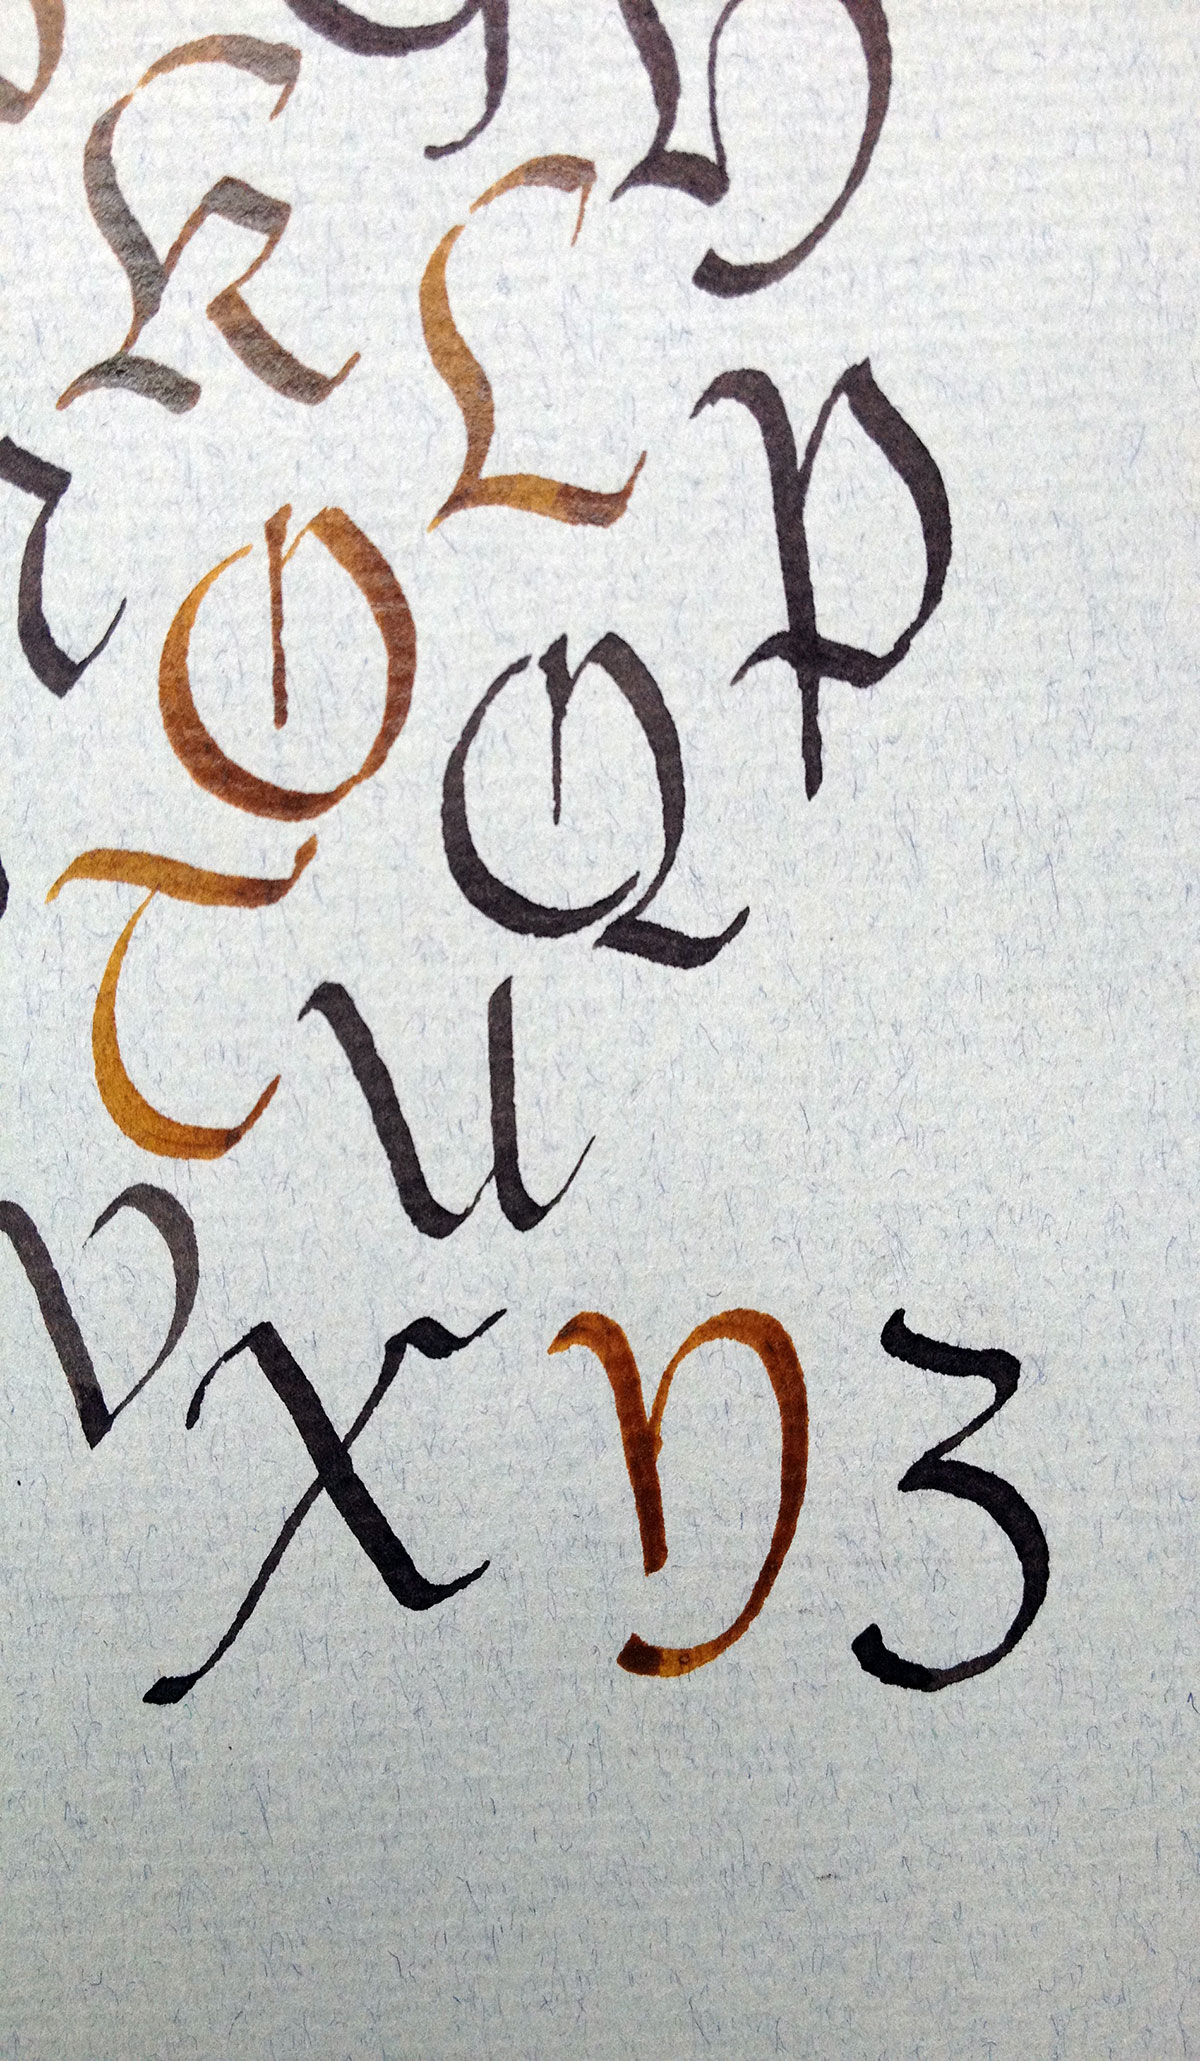 K L
O Q P
T U
V X Y Z